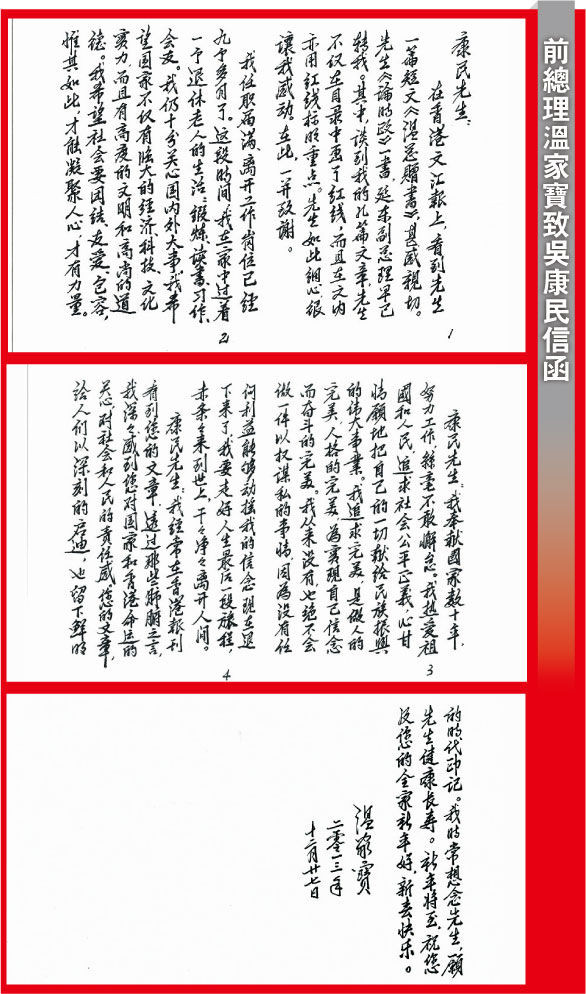 前總理溫家寶致吳康民信函
康民先生：
在香港文汇報上，看到先生
一篇短文《温总贈書》，甚感親切。
先生《論时政》一書，延东副总理早已
转我。其中，谈到我的几篇文章，先生
不仅在目录中画了红线，而且在文内
亦用红线标明重点。先生如此细心很
讓我感动。在此，一并致謝。
1
我任职届满、离开工作崗位已经
九个多月了。这段时间，我在家中过着
一个退休老人的生活：鍛炼、读書、习作、
会友。我仍十分关心国内外大事。我希
望国家不仅有強大的经济、科技、文化
实力，而且有高度的文明和高尚的道
德。我希望社会要团结、友爱、包容，
惟其如此，才能凝聚人心，才有力量。
2
康民先生：我奉献國家数十年，
努力工作，絲毫不敢懈怠。我热爱祖
國和人民，追求社会公平正義，心甘
情願地把自己的一切献给民族振興
的偉大事業。我追求完美，是做人的
完美，人格的完美，為實现自己信念
而奋斗的完美。我从来没有，也绝不会
做一件以权谋私的事情，因為没有任
3
何利益能够动摇我的信念。现在退
下来了，我要走好人生最后一段旅程，
赤条々来到世上，干々净々离开人间。
康民先生：我经常在香港報刊
看到您的文章，透过那些肺腑之言，
我深々感到您对国家和香港命运的
关心，对社会和人民的责任感。您的文章，
给人们以深刻的启迪，也留下鲜明
4
的时代印记。我时常想念先生，願
先生健康長寿。新年将至，祝您
及您的全家新年好，新春快乐。
温家寶
二零一三年
十二月廿七日